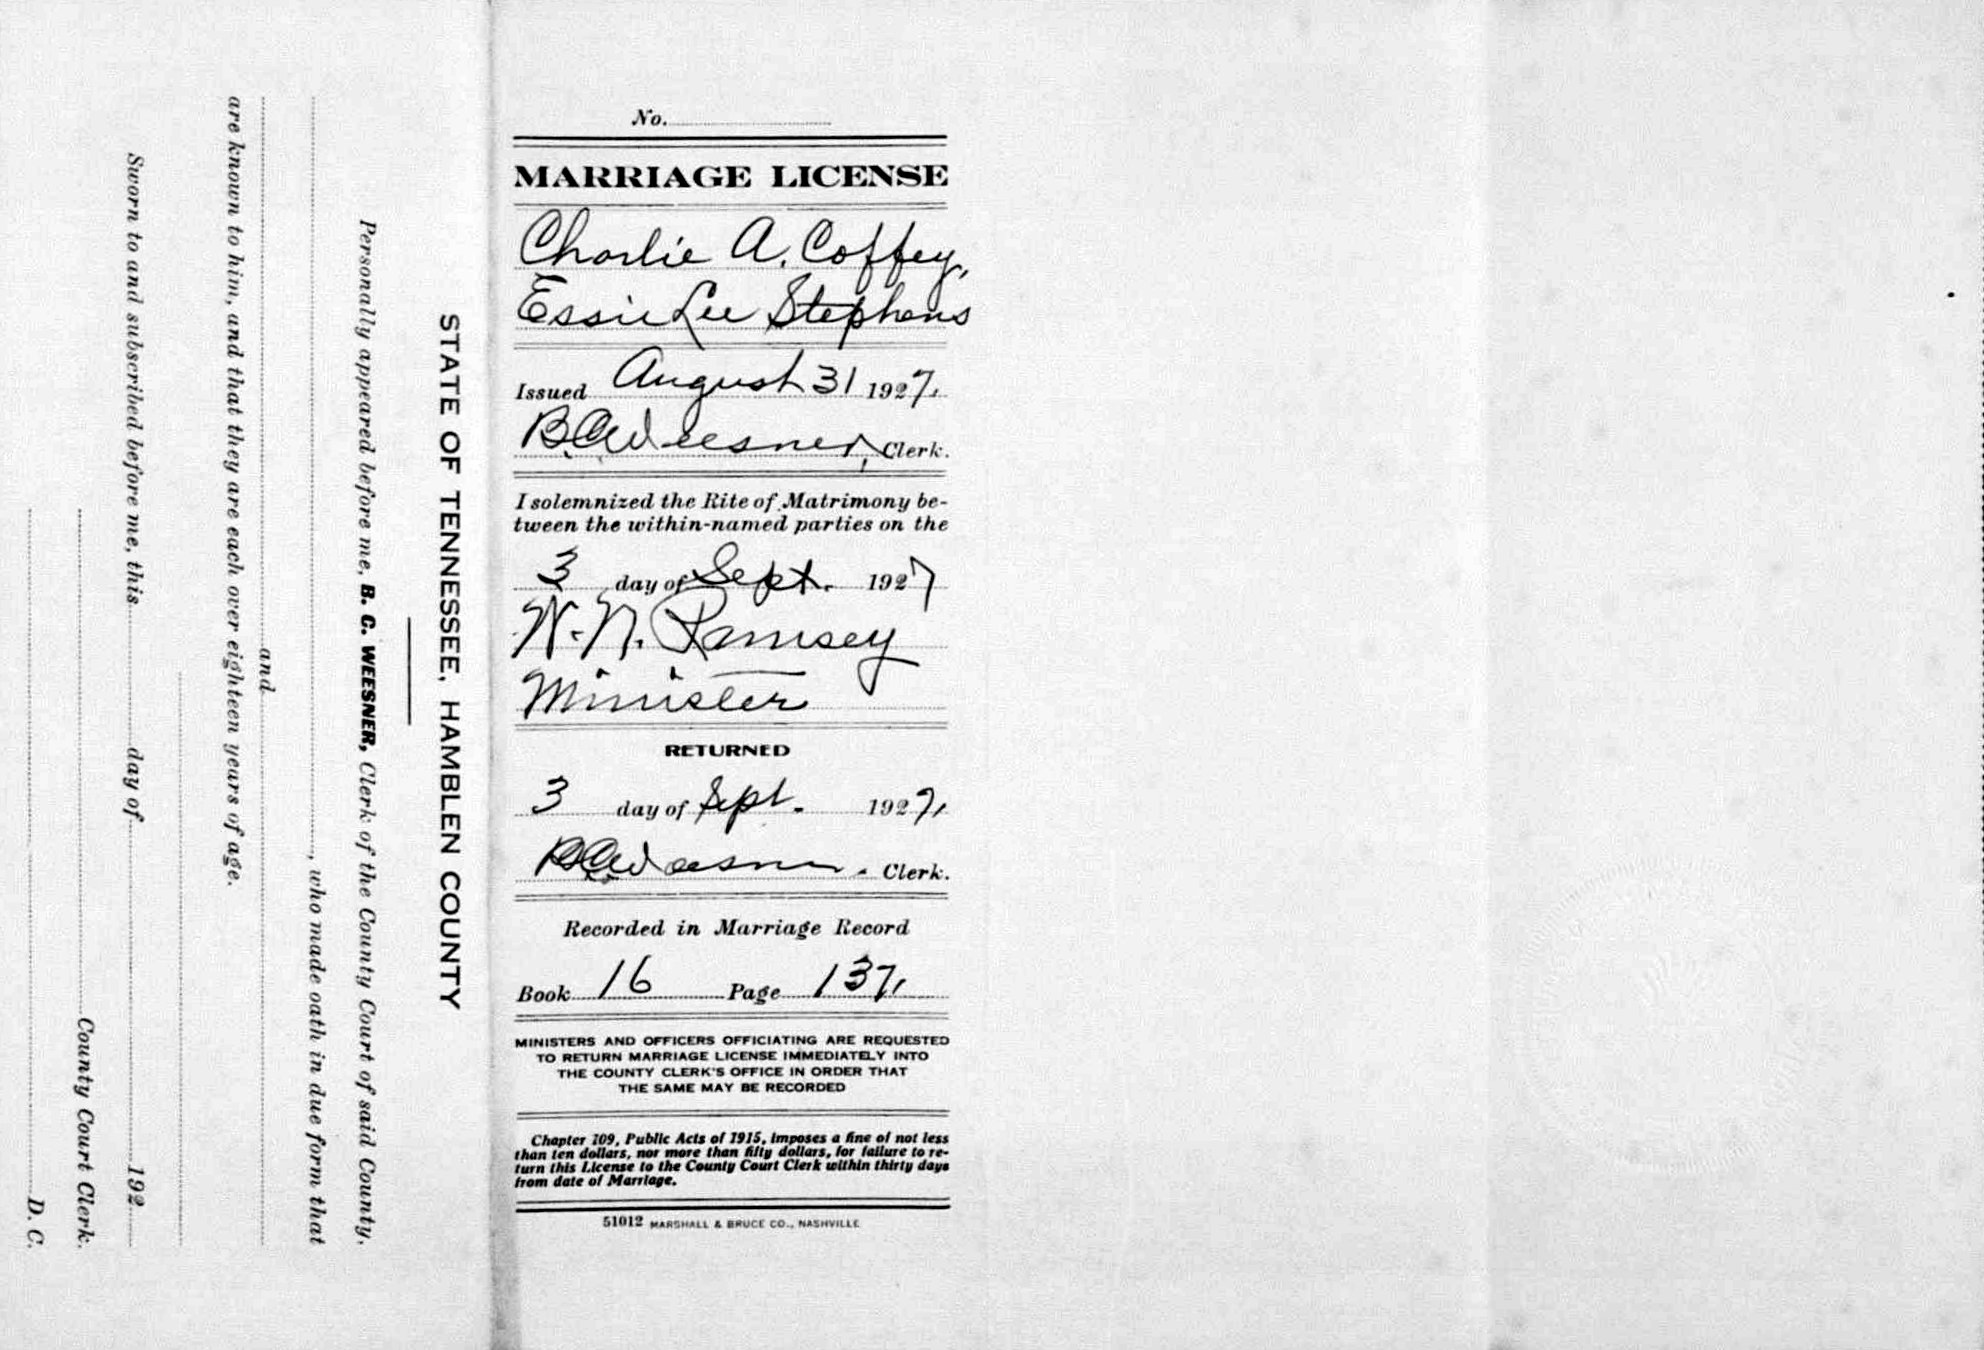 STATE OF TENNESSEE, HAMBLEN COUNTY
Personally appeared before me, B. C. WEESNER, Clerk of the County Court of said County,
, who made oath in due form that
and
are known to him, and that they are each over eighteen years of age.
Sworn to and subscribed before me, this day of 192
County Court Clerk.
D. C.
No.
MARRIAGE LICENSE
Charlie A. Coffey,
Essie Lee Stephens
Issued August 31 1927,
B.C. Weesner, Clerk.
I solemnized the Rite of Matrimony be-
tween the within-named parties on the
3 day of Sept. 1927
W. N. Ramsey
Minister
RETURNED
3 day of Sept. 1927,
B.C. Weesner. Clerk.
Recorded in Marriage Record
Book 16 Page 137,
MINISTERS AND OFFICERS OFFICIATING ARE REQUESTED
TO RETURN MARRIAGE LICENSE IMMEDIATELY INTO
THE COUNTY CLERK'S OFFICE IN ORDER THAT
THE SAME MAY BE RECORDED
Chapter 109, Public Acts of 1915, imposes a fine of not less
than ten dollars, nor more than fifty dollars, for failure to re-
turn this License to the County Court Clerk within thirty days
from date of Marriage.
51012 MARSHALL & BRUCE CO., NASHVILLE